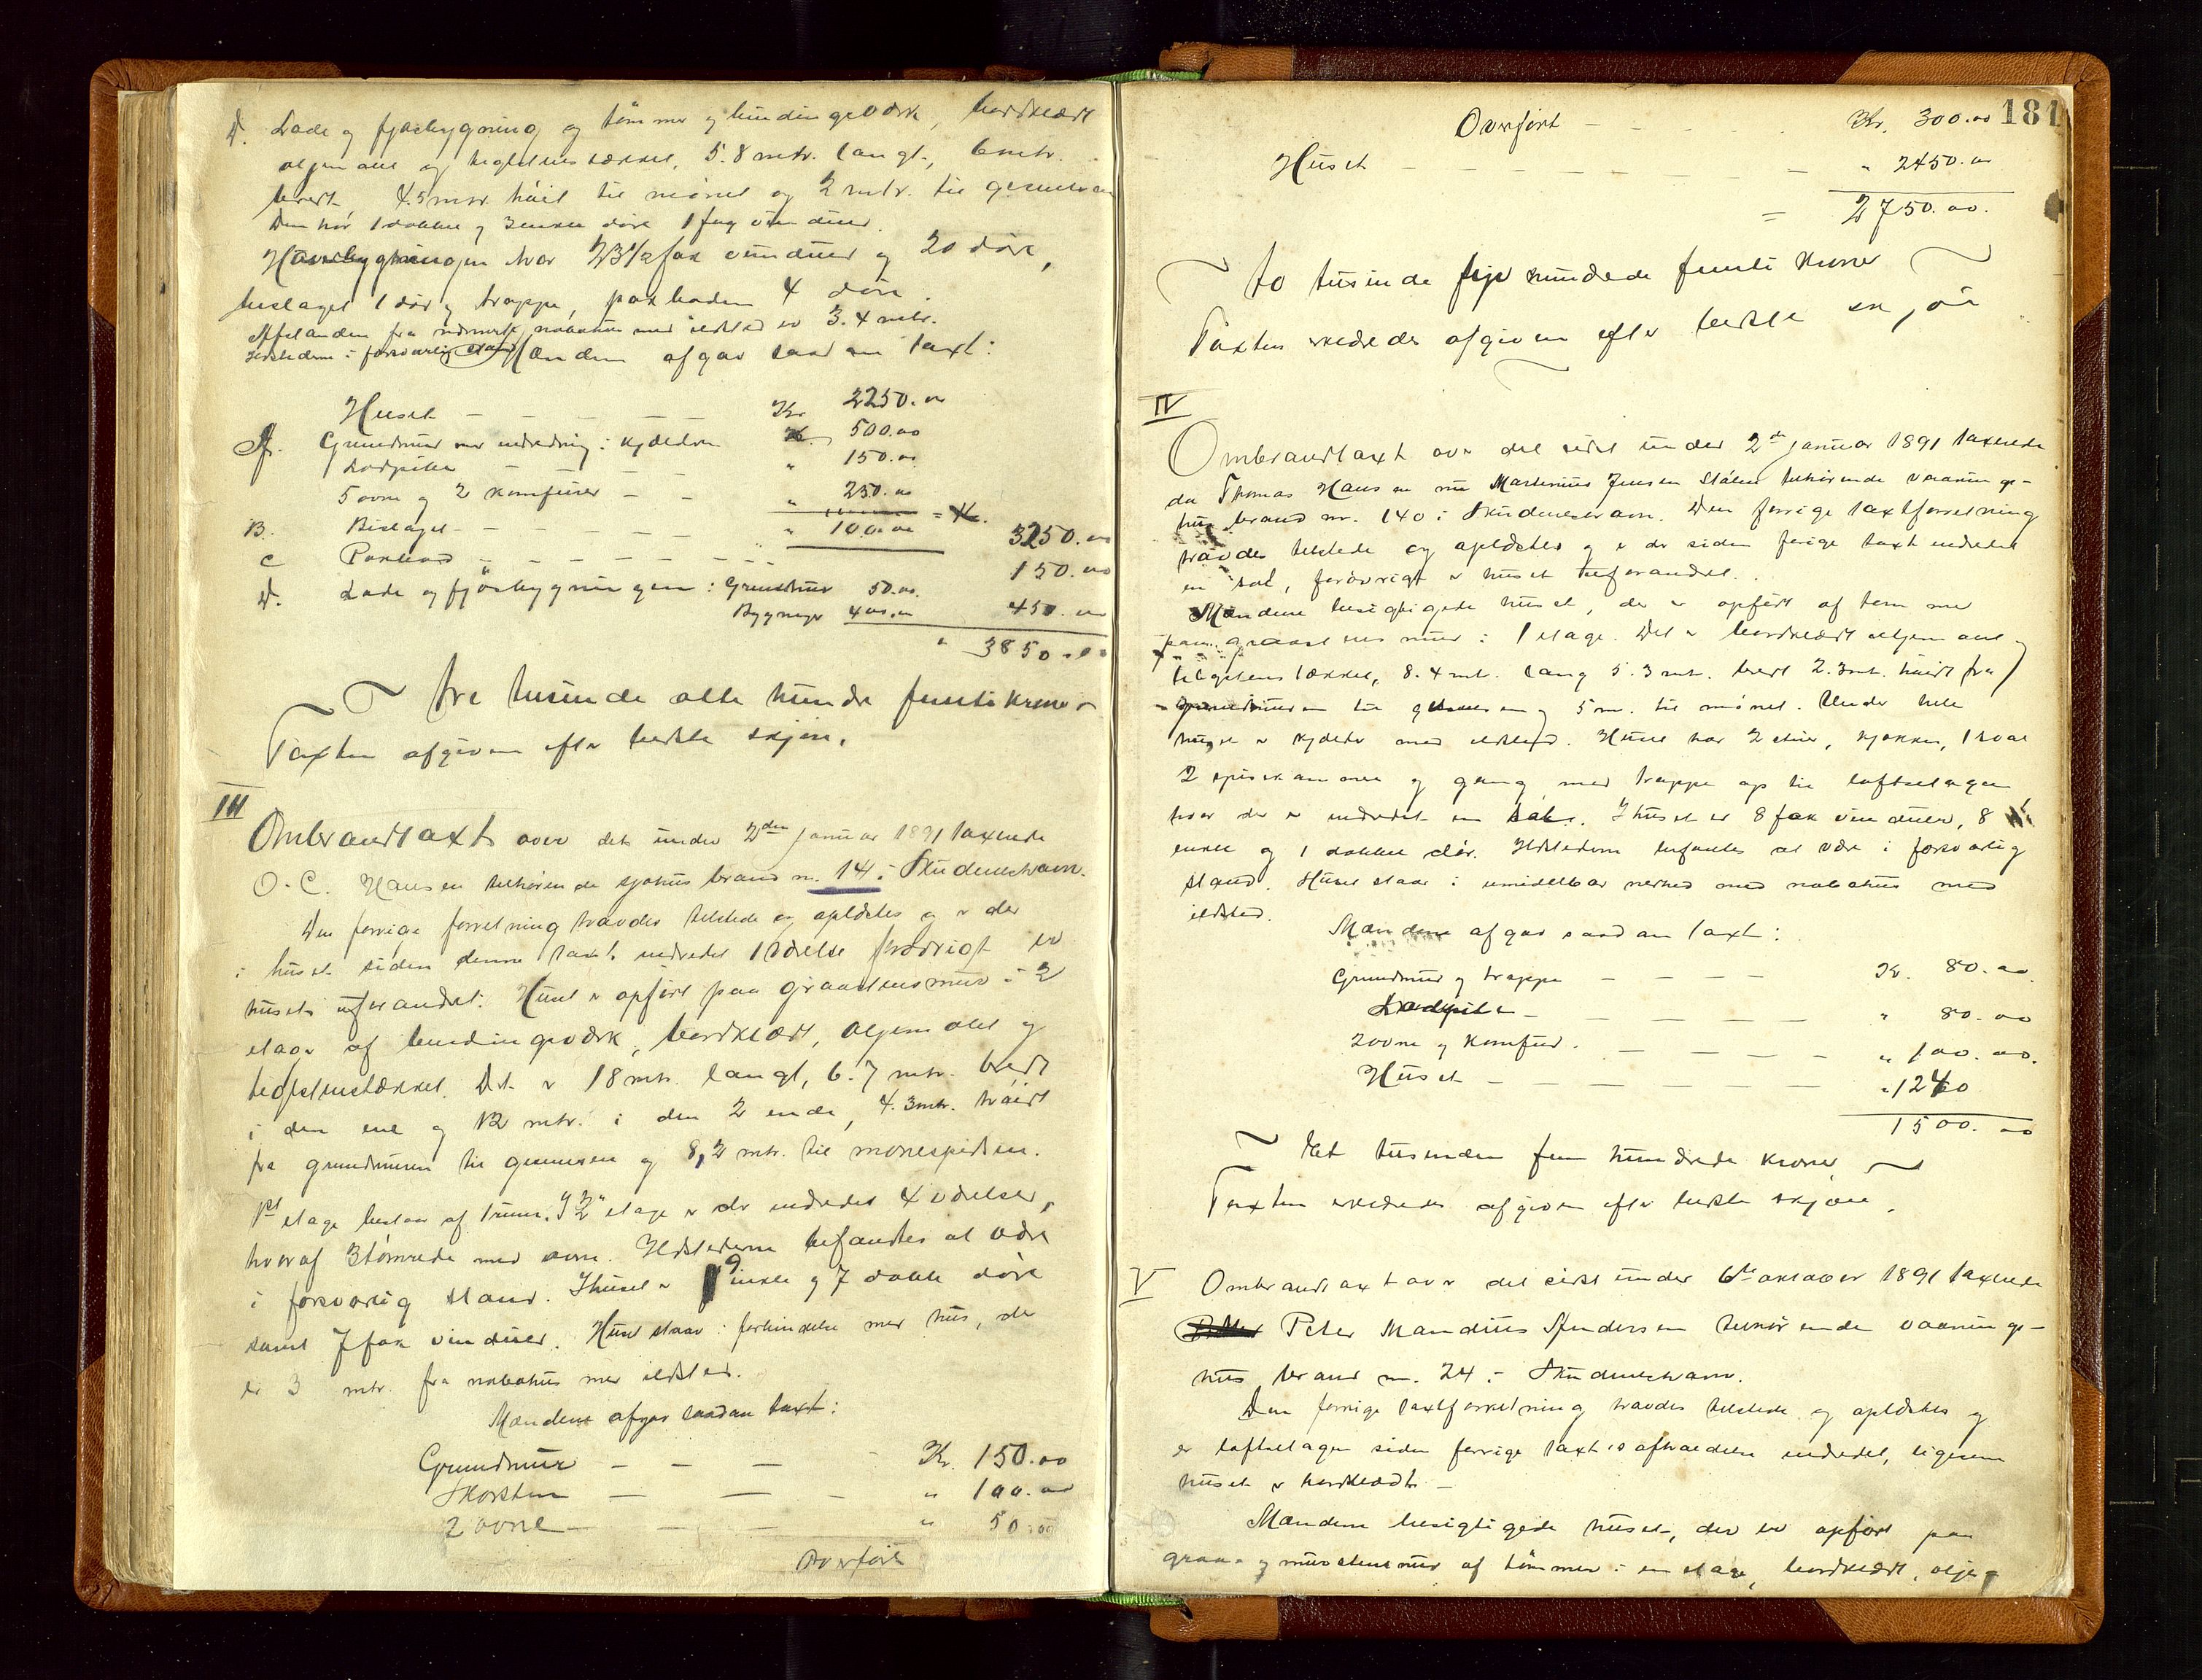 D. Lade og fjøsbygning og tømmer og bindingsværk, bordklædt
oljemalt og teglstenstækket, 5.8 mtr. langt, 6 mtr.
bredt, 4.5 mtr. høit til mønet og 2 mtr. til gesimsen
Den har 1 dobbel og 3 enkle døre 1 fag vinduer.
Hovedbygningen har 23 1/2 fag vinduer og 20 døre,
bislaget 1 dør og trappe, pakboden 4 døre.
Afstanden fra nærmeste nabohus med ildsted er 3.4 mtr.
Ildstederne i forsvarlig stand. Mændene afgav saadan taxt:
Huset — — — — Kr 2250.00
A. Grundmur med indredning i kjælderen " 500.00
1 Lodpibe — — — " 150.00
5 ovne og 2 komfurer — — " 250.00
B. Bislaget — — — — " 100.00 3250.00
C Pakbod — — — — — 150.00
D. Lade og fjøsbygningen: Grundmur 50.00.
Bygninger 400.00 450.00
" 3850.00
tre tusinde otte hundre femti kroner
Taxten afgiven efter bedste skjøn.
III
Ombrandtaxt over det under 2den januar 1891 taxerede
O. C. Hansen tilhørende sjøhus brand nr. 14 i Skudeneshavn.
Den forrige forretning havdes tilstede og oplæstes og er der
i huset siden denne taxt indredet 1 værelse forøvrigt er
huset uforandret. Huset er opført paa graastensmur i 2
etager af bindingsværk, bordklædt, oljemalet og
teglstenstækket. Det er 18 mtr. langt, 6.7 mtr. bredt
i den ene og 12 mtr. i den 2 ende, 4.3 mtr. høidt
fra grundmuren til gesimsen og 8,2 mtr. til mønespidsen.
1st etage bestaar af 1 rum. I 2 etage er der indredet 4 værelser,
hvoraf 3 tømrede med ovne. Ildstederne befandtes at være
i forsvarlig stand. I huset er 9 enkle og 7 doble døre
samt 7 fag vinduer. Huset staar i forbindelse med hus, der
er 3 mtr. fra nabohus med ildsted.
Mændene afgav saadan taxt:
Grundmur — — — Kr. 150.00
Skorsten — — — " 100.00
2 ovne — — — " 50.00
Overført
181
Overført — — — Kr. 300.00
Huset — — — — — — " 2450.00
= 2750.00.
to tusinde syv hundrede femti kroner
Taxten erklædes afgiven efter bedste skjøn
IV
Ombrandtaxt over det sidst under 2de januar 1891 taxerede
da Thomas Hansen nu Martinius Jensen Stålen tilhørende vaaningshus
brand nr. 140 i Skudeneshavn. Den forrige taxtforretning
havdes tilstede og oplæstes og er der siden forige taxt indredet
en sal, forøvrigt er huset uforandret.
Mændene besigtigede huset, der er opført af tømmer
paa graastens mur i 1 etage. Det er bordklædt oljemalt og
teglstenstækket, 8.4 mt. lang 5.3 mt. bredt 2.3 mt. høidt fra
grundmuren til gesimsen og 5 m. til mønet. Under hele
huset er kjelder med ildsted. Huset har 2 stuer, kjøkken, 1 sval
2 spisekammer og gang med trappe op til loftsetagen
hvor der er indredet en sal. I huset er 8 fag vinduer, 8
enkle og 1 dobbel dør. Ildstederne befandtes at være i forsvarlig
stand. Huset staar i umiddelbar nærhed med nabohus med
ildsted.
Mændene afgav saadan taxt:
Grundmur og trappe — — — — Kr. 80.00
Lodpibe — — — — — " 80.00
2 ovne og komfur. — — — — " 100.00.
Huset — — — — — — " 1240
1500.00
Et tusinden fem hundrede kroner
Taxten erklædes afgiven efter bedste skjøn.
V Ombrandtaxt over det sidst under 6te oktober 1891 taxerede
Peter Mandius Andersen tilhørende vaaningshus
brand nr. 24 i Skudeneshavn.
Den forrige taxtforretning havdes tilstede og oplæstes og
er loftsetagen siden forrige taxts afholdelse indredet, ligesom
huset er bordklædt.—
Mændene besigtigede huset, der er opført paa
graa- og murstensmur af tømmer i en etage, bordklædt, olje-